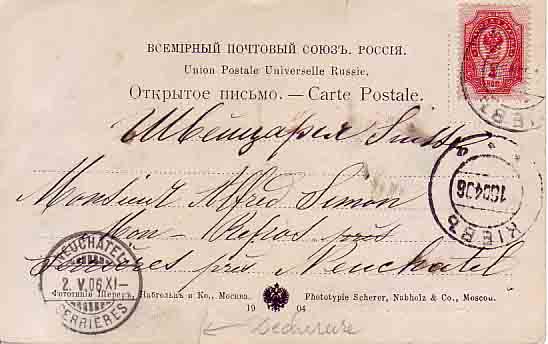 ВСЕМІРНЫЙ ПОЧТОВЫЙ СОЮЗЪ. РОССІЯ.
Union Postale Universelle Russie.
Открытое письмо. — Carte Postale.
КІЕВЪ
Швейцарея Suisse
Monsieur Alfred Simon
Mon Repos près
Serrières près Neuchatel
КІЕВЪ
NEUCHATEL
2. V. 06 XI
SERRIERES
Фототипія Шереръ, Набгольцъ и Ко., Москва.
Phototypie Scherer, Nabholz & Co., Moscou.
19 04